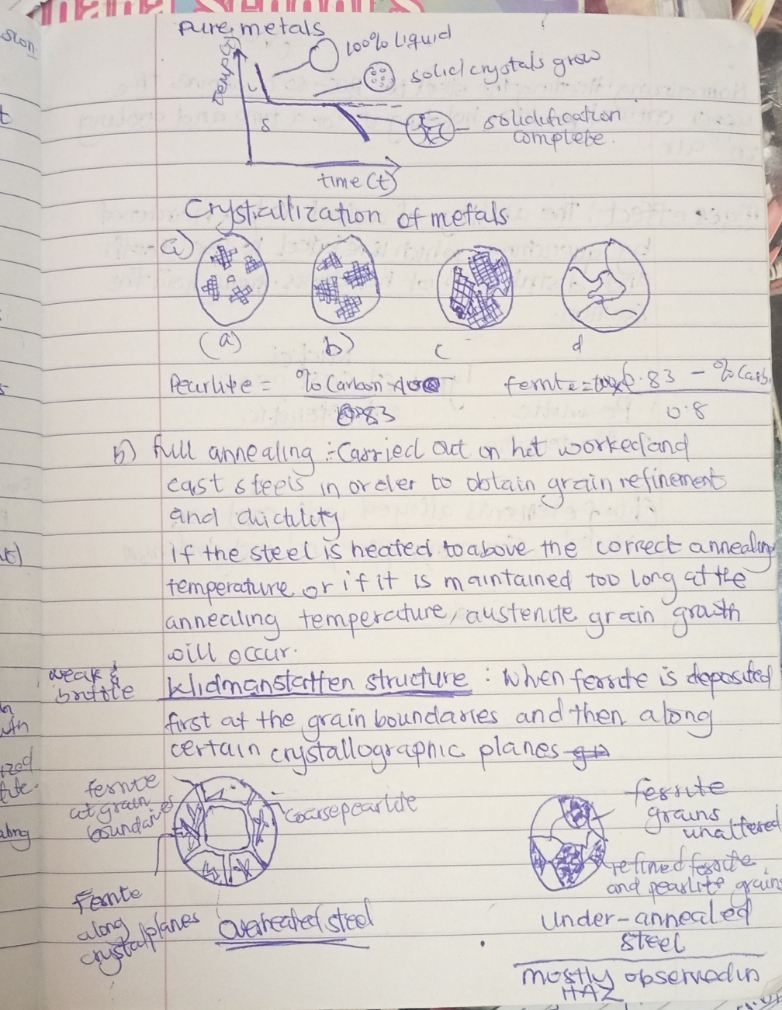 Pure metals
100% Liquid
Temp
solid crystals grow
L
S
solidification
complete.
time (t)
Crystallization of metals
a)
(a)
b)
c
d
Pearlite = % Carbon × 100
0.83
ferrite = 0.83 - % Carb
0.8
b) Full annealing :- Carried out on hot worked and
cast steels in order to obtain grain refinement
and ductility
If the steel is heated to above the correct annealing
temperature or if it is maintained too long at the
annealing temperature, austenite grain growth
will occur.
weak &
brittle
Widmanstatten structure : When ferrite is deposited
first at the grain boundaries and then along
certain crystallographic planes
ferrite
at grain
boundaries
coarse pearlite
Ferrite
along
crystal planes
overheated steel
ferrite
grains
unaltered
refined ferrite
and pearlite grains
Under-annealed
steel
mostly observed in
HAZ